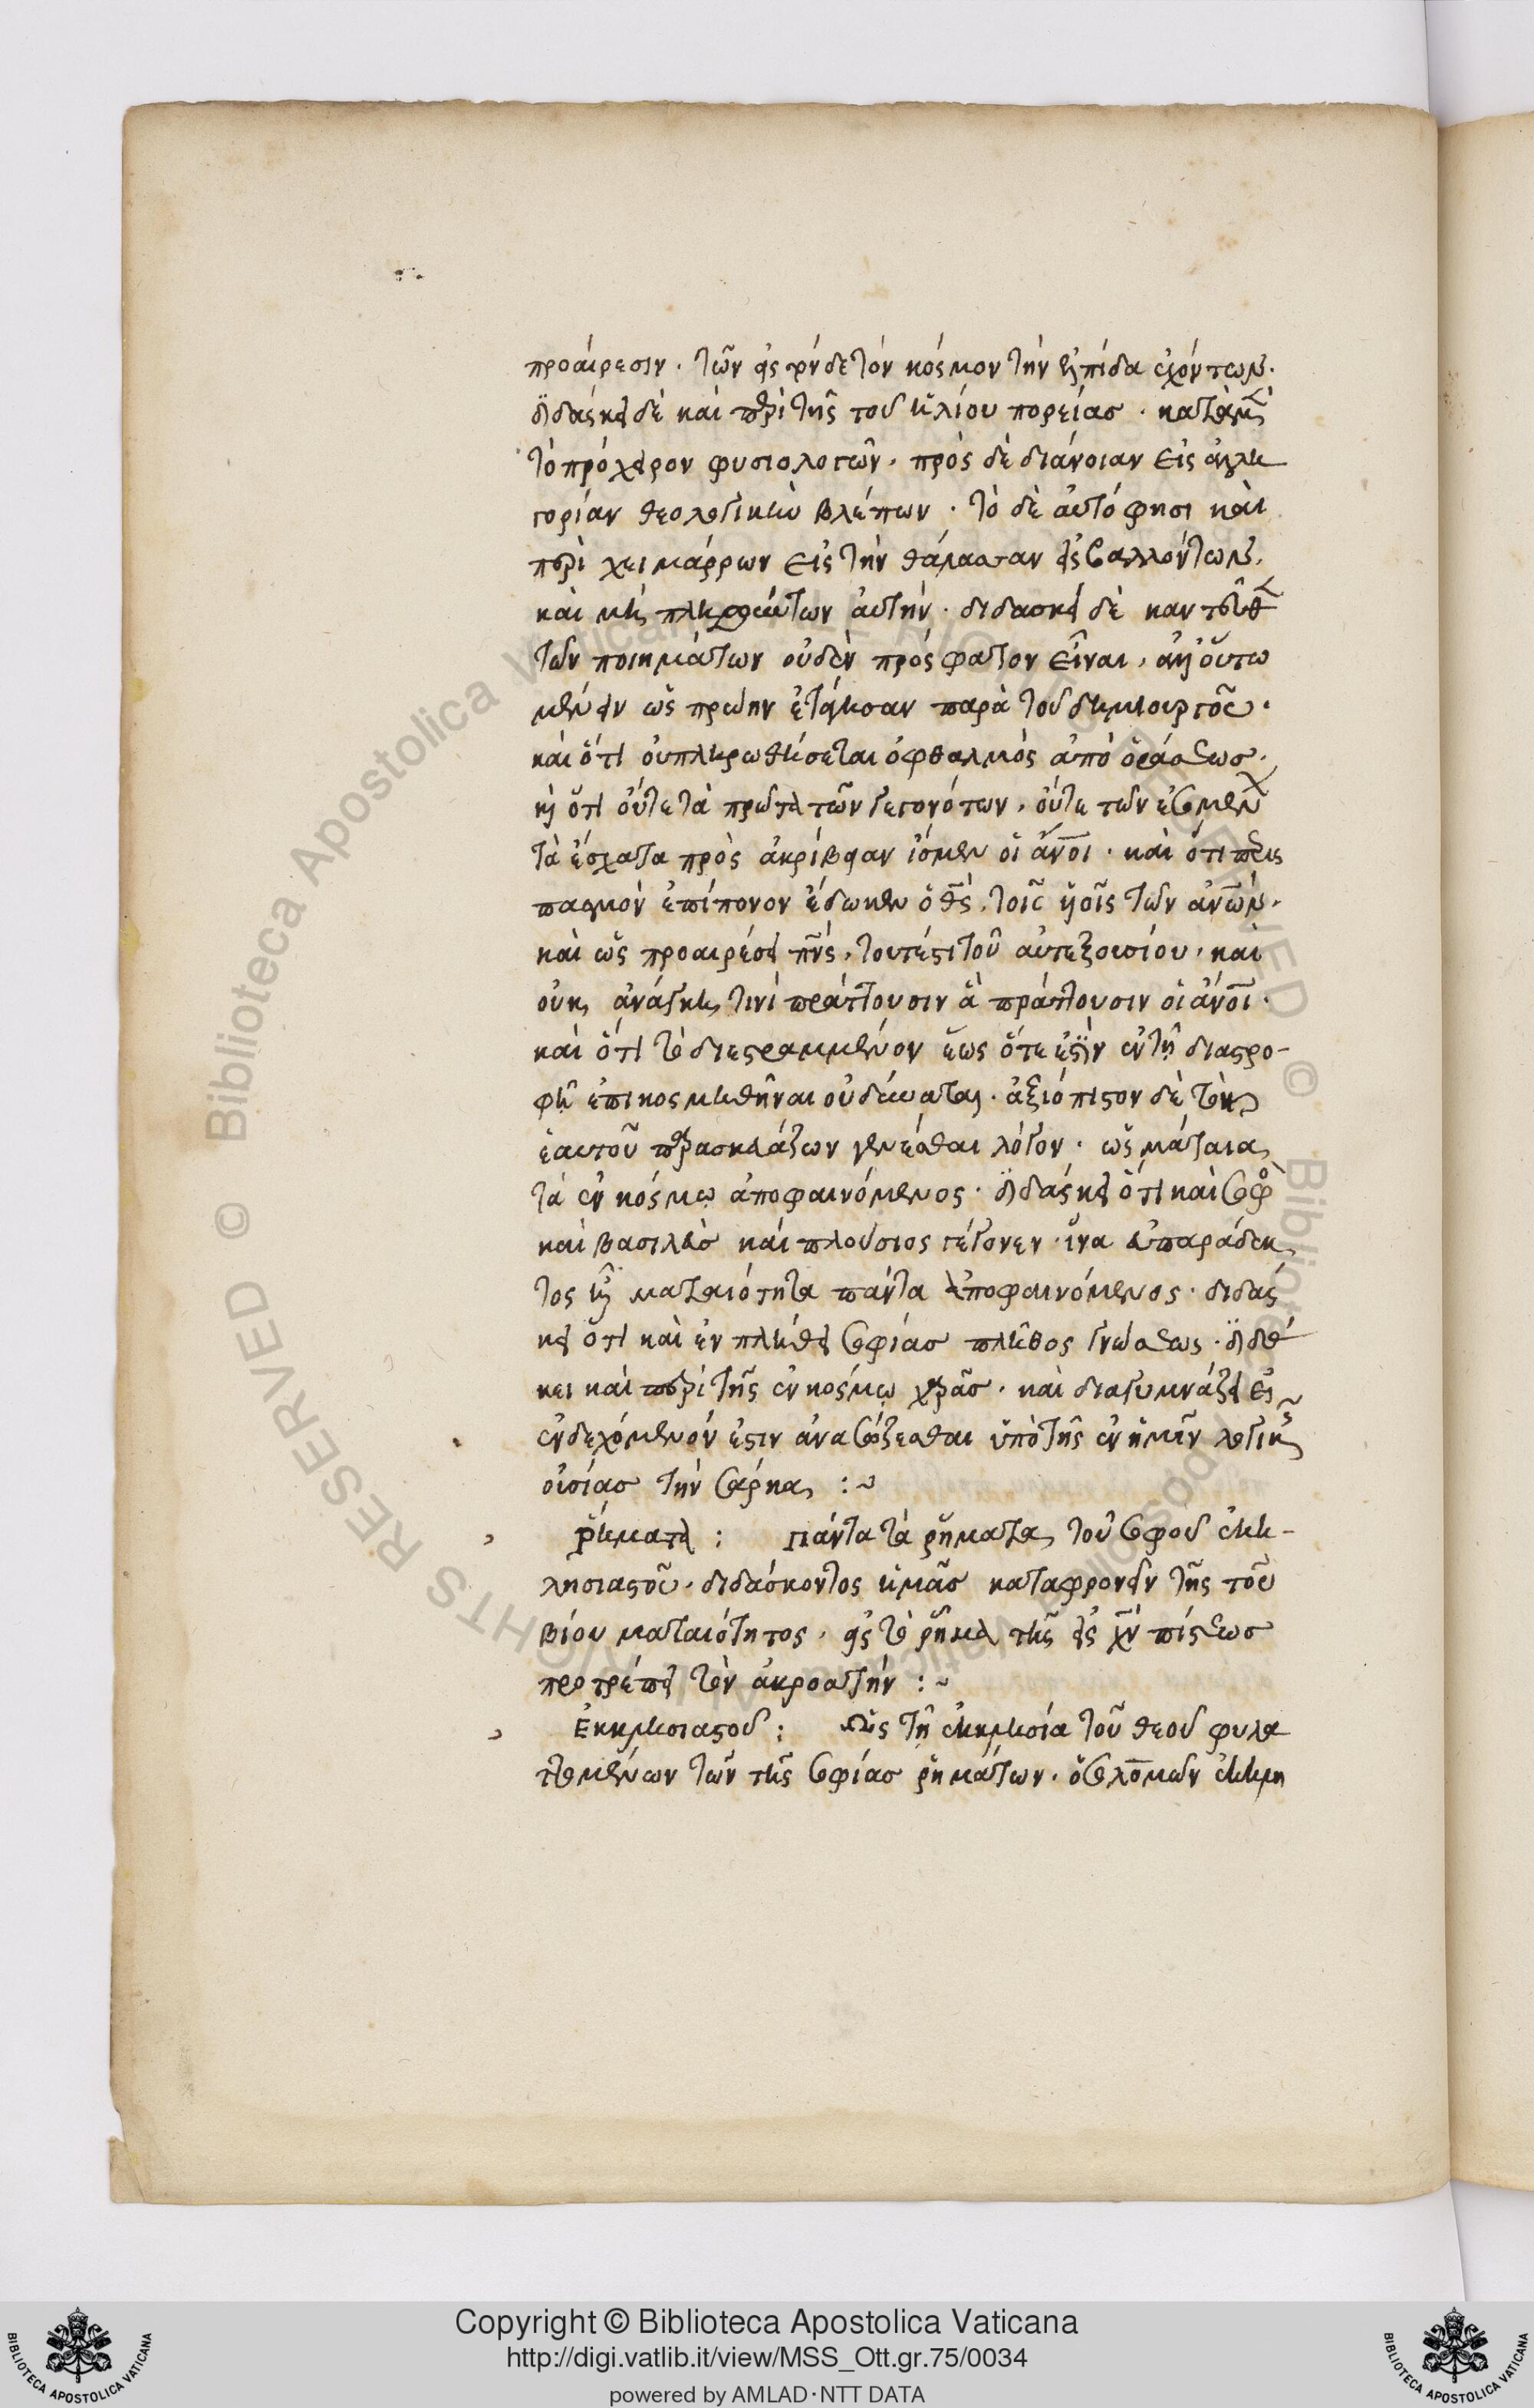 προαίρεσιν. τῶν εἰς τόνδε τὸν κόσμον τὴν ἐλπίδα ἐχόντων.
διδάσκει δὲ καὶ περὶ τῆς τοῦ ἡλίου πορείας. κατὰ
τὸ πρόχειρον φυσιολογῶν. πρὸς δὲ διάνοιαν εἰς ἀλλη
γορίαν θεολογικὴν βλέπων. τὸ δὲ αὐτό φησι καὶ
περὶ χειμάρρων εἰς τὴν θάλασσαν εἰσβαλλόντων.
καὶ μὴ πληρούντων αὐτήν. διδάσκει δὲ
τῶν ποιημάτων οὐδὲν πρόσφατον εἶναι, ἀλλ' οὕτω
μένειν ὡς πρώην ἐτάγησαν παρὰ τοῦ δημιουργοῦ.
καὶ ὅτι οὐ πληρωθήσεται ὀφθαλμὸς ἀπὸ ὁράσεως.
κ ὅτι οὔτε τὰ πρῶτα τῶν γεγονότων, οὔτε τῶν ἐσομεν
τὰ ἔσχατα πρὸς ἀκρίβειαν ἴσμεν οἱ ἄνοι. καὶ ὅτι περις
πασμὸν ἐπίπονον ἔδωκεν ὁ θς, τοῖς υἱοῖς τῶν ἀνων.
καὶ ὡς προαιρέσει πνς, τουτέστι τοῦ αὐτεξουσίου, καὶ
οὐκ ἀνάγκῃ τινὶ πράττουσιν ἃ πράττουσιν οἱ ἄνοι.
καὶ ὅτι τὸ διεστραμμένον ἕως ὅτε ἐστὶν ἐν τῇ διαστρο-
φῇ ἐπικοσμηθῆναι οὐ δύναται. ἀξιόπιστον δὲ τὸν
ἑαυτοῦ παρασκευάζων γενέσθαι λόγον. ὡς μάταια
τὰ ἐν κόσμῳ ἀποφαινόμενος. διδάσκει ὅτι καὶ σοφὸ
καὶ βασιλεὺς καὶ πλούσιος γέγονεν. ἵνα εὐπαράδεκ
τος ᾖ ματαιότητα πάντα ἀποφαινόμενος. διδάσ
κει ὅτι καὶ ἐν πλήθει σοφίας πλῆθος γνώσεως. διδάσ
κει καὶ περὶ τῆς ἐν κόσμῳ χαρᾶς. καὶ διαγυμνάζει εἰ
ἐνδεχόμενόν ἐστιν ἀνασώζεσθαι ὑπὸ τῆς ἐν ἡμῖν λογικῆς
οὐσίας τὴν σάρκα :~
Ῥήματα : Πάντα τὰ ῥήματα τοῦ σοφοῦ ἐκκ-
λησιαστοῦ. διδάσκοντος ἡμᾶς καταφρονεῖν τῆς τοῦ
βίου ματαιότητος. εἰς τὸ ῥῆμα τῆς εἰς χν πίστεως
προτρέπει τὸν ἀκροατήν :~
Ἐκκλησιαστοῦ : Ὡς τῇ ἐκκλησίᾳ τοῦ θεοῦ φυλα
ττομένων τῶν τῆς σοφίας ῥημάτων. ὁ σολομῶν ἐκκλη
Copyright © Biblioteca Apostolica Vaticana
http://digi.vatlib.it/view/MSS_Ott.gr.75/0034
powered by AMLAD·NTT DATA
BIBLIOTECA APOSTOLICA VATICANA
BIBLIOTECA APOSTOLICA VATICANA